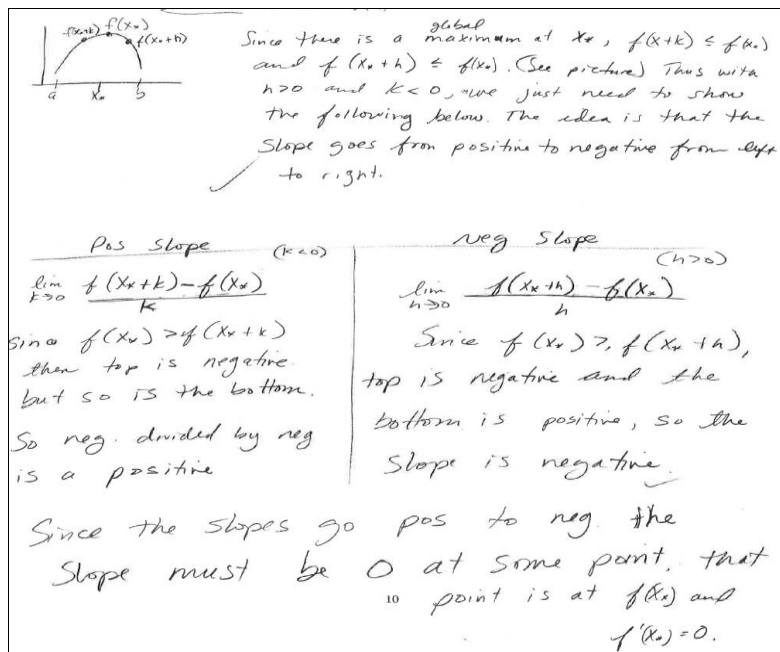 f(x*+k) f(x*) f(x*+h)
a x* b
global
Since there is a maximum at x*, f(x+k) ≤ f(x*)
and f(x*+h) ≤ f(x*). (See picture) Thus with
h>0 and k<0, we just need to show
the following below. The idea is that the
slope goes from positive to negative from left
to right.
Pos Slope (k<0)
lim k→0 f(x*+k)-f(x*) / k
Since f(x*) ≥ f(x*+k)
then top is negative
but so is the bottom.
So neg. divided by neg
is a positive
Neg Slope
(h>0)
lim h→0 f(x*+h)-f(x*) / h
Since f(x*) ≥ f(x*+h),
top is negative and the
bottom is positive, so the
slope is negative.
Since the slopes go pos to neg. the
slope must be 0 at some point, that
10 point is at f(x*) and
f'(x*)=0.